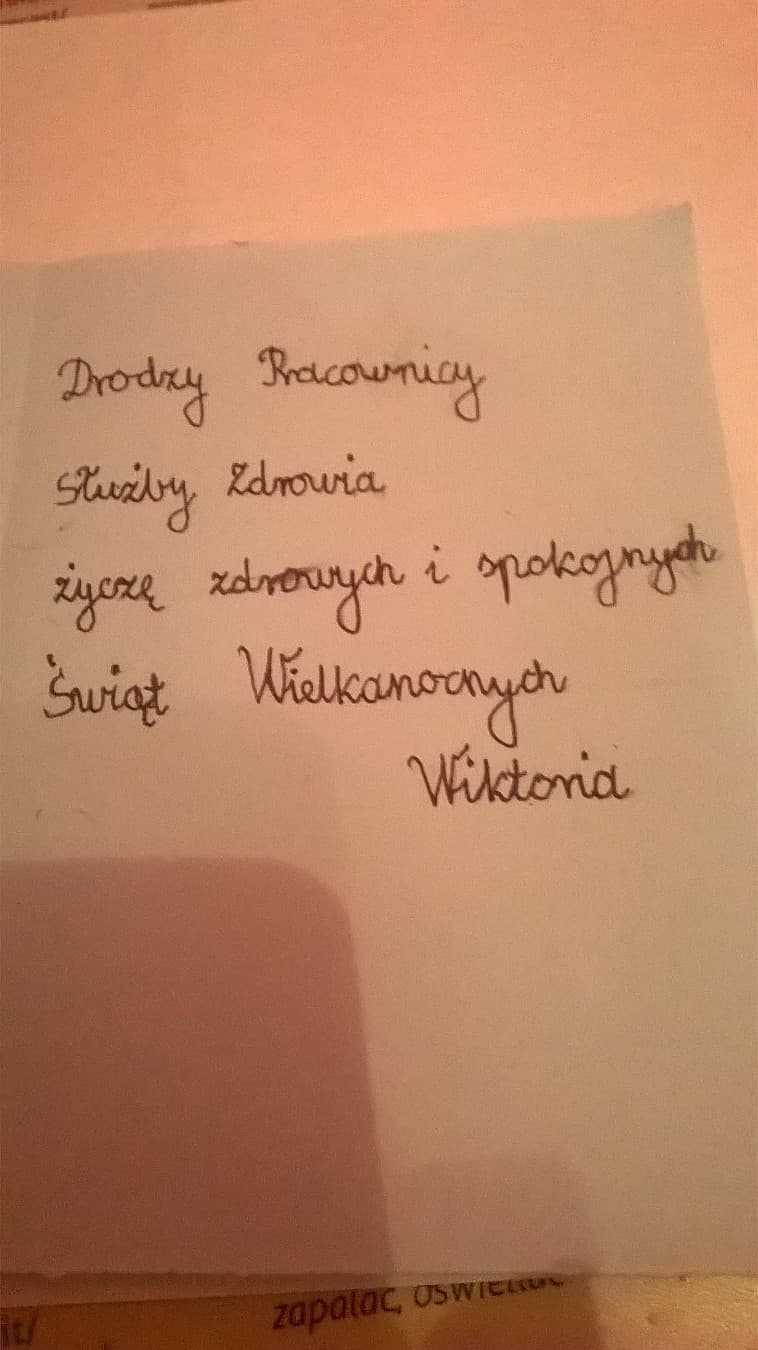 Drodzy Pracownicy
Służby Zdrowia
życzę zdrowych i spokojnych
Świąt Wielkanocnych
Wiktoria
zapalać,
it/